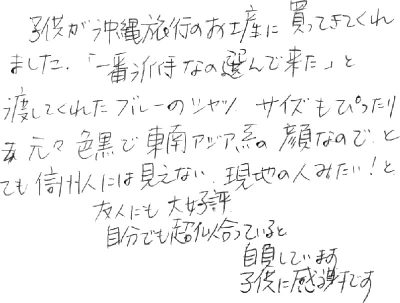 子供が沖縄旅行のお土産に買ってきてくれ
ました.「一番派手なの選んで来た」と
渡してくれたブルーのシャツ サイズもぴったり
元々色黒で東南アジア系の顔なのでと
ても信州人には見えない.現地の人みたい!と
友人にも大好評
自分でも超似合っていると
自負しています
子供に感謝です